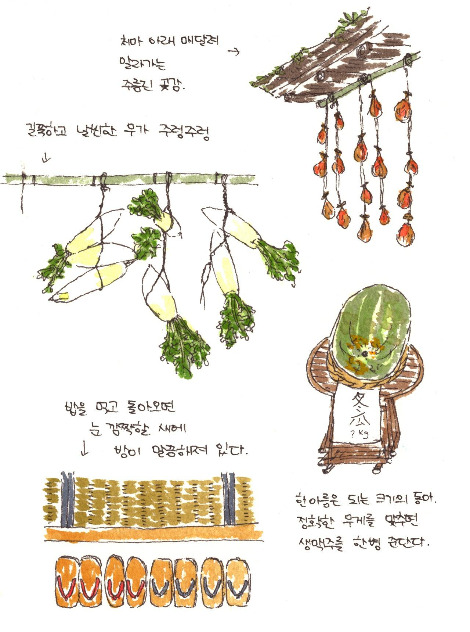 처마 아래 매달려
말라가는
주름진 곶감.
길쭉하고 날씬한 무가 주렁주렁
밥을 먹고 돌아오면
눈 깜짝할 새에
방이 말끔해져 있다.
冬瓜
? kg
한아름은 되는 크기의 동아.
정확한 무게를 맞추면
생맥주를 한병 준단다.